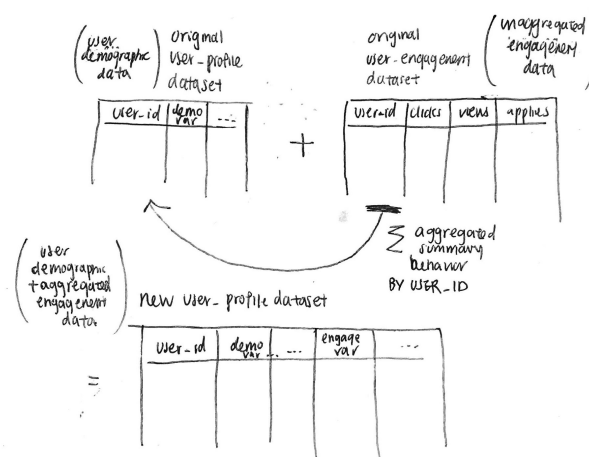 user
demographic
data
original
user-profile
dataset
original
user-engagement
dataset
unaggregated
engagement
data
user-id demo var ...
+
user-id clicks views applies
Σ aggregated
summary
behavior
BY USER_ID
user
demographic
+aggregated
engagement
data
new user-profile dataset
=
user-id demo var ... ... engage var ...